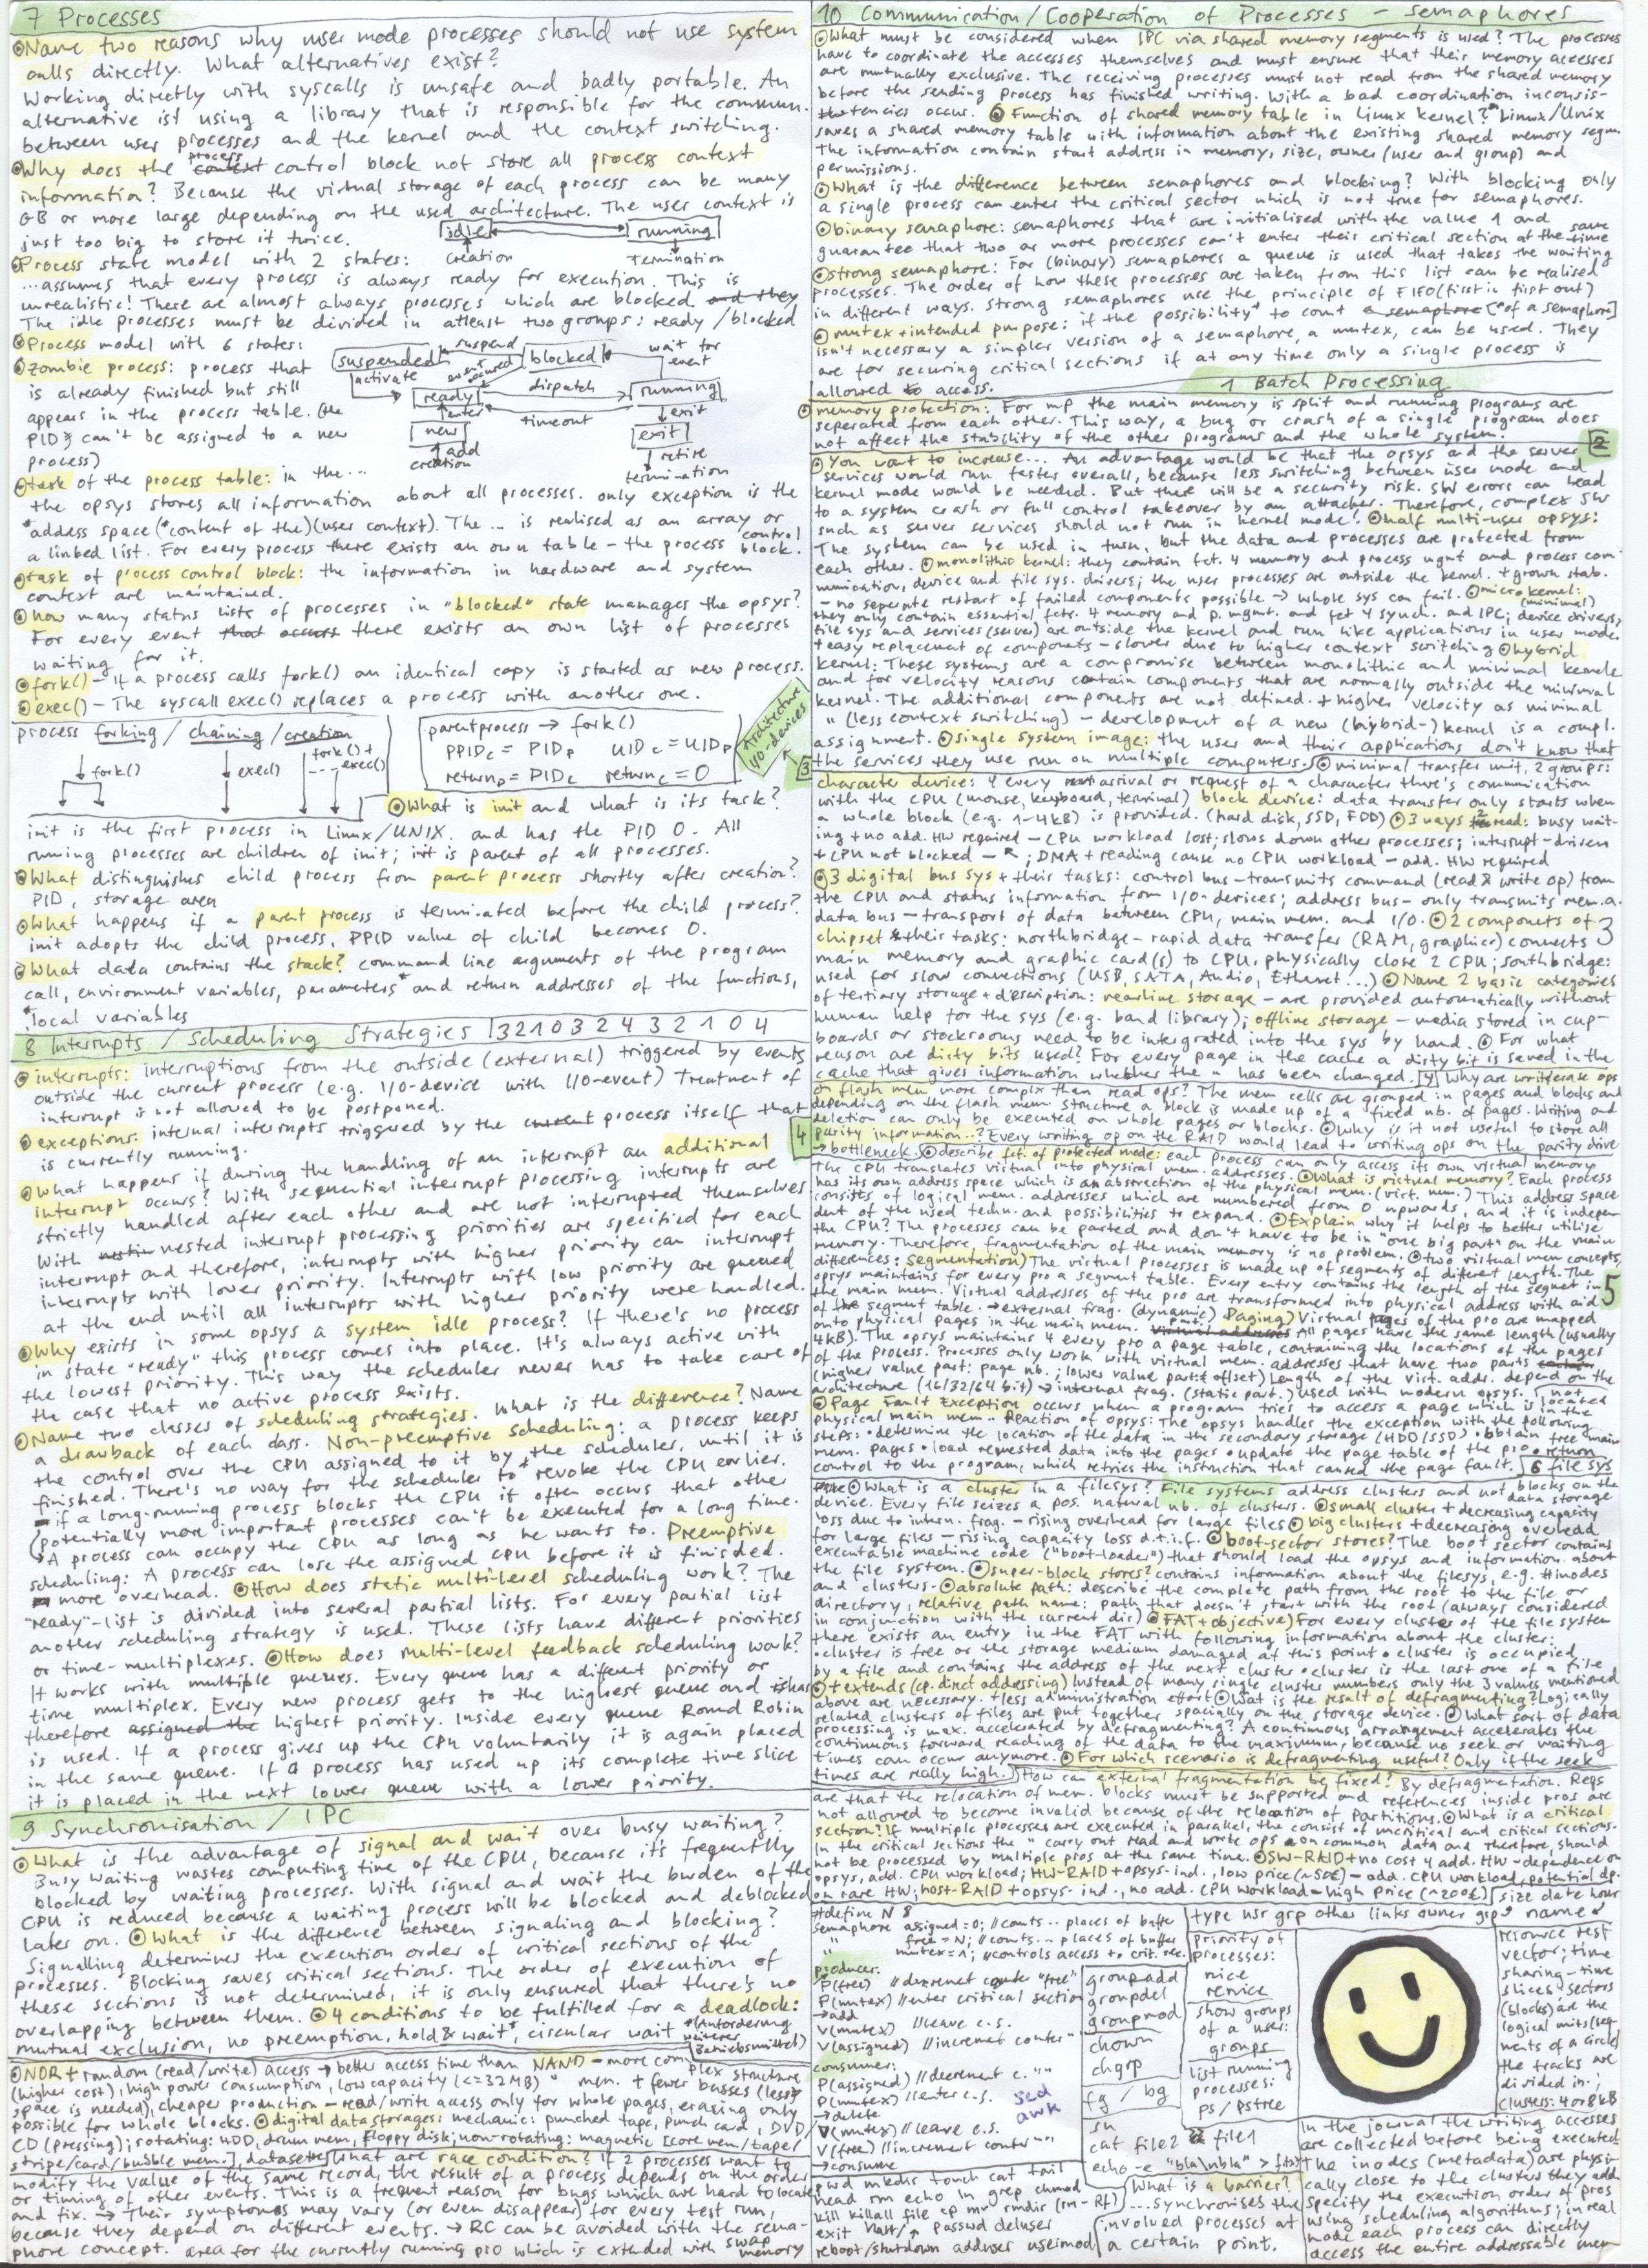 7 Processes
Name two reasons why user mode processes should not use system
calls directly. What alternatives exist?
Working directly with syscalls is unsafe and badly portable. An
alternative ist using a library that is responsible for the commun.
between user processes and the kernel and the context switching.
Why does the process control block not store all process context
information? Because the virtual storage of each process can be many
GB or more large depending on the used architecture. The user context is
just too big to store it twice.
idle running
creation termination
Process state model with 2 states:
...assumes that every process is always ready for execution. This is
unrealistic! There are almost always processes which are blocked and they
The idle processes must be divided in atleast two groups: ready/blocked
Process model with 6 states:
suspended suspend blocked wait for event
activate event occured dispatch running
ready timeout
enter exit
new exit
add retire
creation termination
zombie process: process that
is already finished but still
appears in the process table. (the
PID can't be assigned to a new
process)
task of the process table: in the ...
the opsys stores all information about all processes. only exception is the
*address space (*content of the)(user context). The ... is realised as an array or
a linked list. For every process there exists an own table - the process control block.
task of process control block: the information in hardware and system
context are maintained.
how many status lists of processes in "blocked" state manages the opsys?
For every event that occurs there exists an own list of processes
waiting for it.
fork() - if a process calls fork() an identical copy is started as new process.
exec() - The syscall exec() replaces a process with another one.
process forking / chaining / creation
fork() exec() fork() + exec()
parentprocess → fork()
PPIDc = PIDp UIDc = UIDp
returnp = PIDc returnc = 0
Architecture I/O-devices
3
What is init and what is its task?
init is the first process in Linux/UNIX. and has the PID 0. All
running processes are children of init; init is parent of all processes.
What distinguishes child process from parent process shortly after creation?
PID, storage area
What happens if a parent process is terminated before the child process?
init adopts the child process. PPID value of child becomes 0.
What data contains the stack? command line arguments of the program
call, environment variables, parameters* and return addresses of the functions,
*local variables
8 Interrupts / Scheduling Strategies 3 2 1 0 3 2 4 3 2 1 0 4
interrupts: interruptions from the outside (external) triggered by events
outside the current process (e.g. I/O-device with I/O-event) Treatment of
interrupt is not allowed to be postponed.
exceptions: internal interrupts triggered by the current process itself that
is currently running.
What happens if during the handling of an interrupt an additional
interrupt occurs? With sequential interrupt processing interrupts are
strictly handled after each other and are not interrupted themselves
With nested interrupt processing priorities are specified for each
interrupt and therefore, interrupts with higher priority can interrupt
interrupts with lower priority. Interrupts with low priority are queued
at the end until all interrupts with higher priority were handled.
Why exists in some opsys a system idle process? If there's no process
in state "ready" this process comes into place. It's always active with
the lowest priority. This way the scheduler never has to take care of
the case that no active process exists.
Name two classes of scheduling strategies. What is the difference? Name
a drawback of each class. Non-preemptive scheduling: a process keeps
the control over the CPU assigned to it by the scheduler, until it is
finished. There's no way for the scheduler to revoke the CPU earlier.
- if a long-running process blocks the CPU it often occurs that other
(potentially more important processes can't be executed for a long time.
A process can occupy the CPU as long as he wants to. Preemptive
scheduling: A process can lose the assigned CPU before it is finished.
- more overhead. How does static multi-level scheduling work? The
"ready"-list is divided into several partial lists. For every partial list
another scheduling strategy is used. These lists have different priorities
or time-multiplexes. How does multi-level feedback scheduling work?
It works with multiple queues. Every queue has a different priority or
time multiplex. Every new process gets to the highest queue and has
therefore assigned the highest priority. Inside every queue Round Robin
is used. If a process gives up the CPU voluntarily it is again placed
in the same queue. If a process has used up its complete time slice
it is placed in the next lower queue with a lower priority.
9 Synchronisation / IPC
What is the advantage of signal and wait over busy waiting?
Busy waiting wastes computing time of the CPU, because it's frequently
blocked by waiting processes. With signal and wait the burden of the
CPU is reduced because a waiting process will be blocked and deblocked
later on. What is the difference between signaling and blocking?
Signalling determines the execution order of critical sections of the
processes. Blocking saves critical sections. The order of execution of
these sections is not determined, it is only ensured that there's no
overlapping between them. 4 conditions to be fulfilled for a deadlock:
mutual exclusion, no preemption, hold & wait*, circular wait *(Anforderung weiterer Betriebsmittel)
NOR + random (read/write) access → better access time than NAND - more complex structure
(higher cost), high power consumption, low capacity (<=32MB) " mem. + fewer busses (less
space is needed), cheaper production - read/write access only for whole pages, erasing only
possible for whole blocks. digital data storages: mechanic: punched tape, punch card, DVD/
CD (pressing); rotating: HDD, drum mem, floppy disk; non-rotating: magnetic [core mem/tape/
stripe/card/bubble mem.], datasette What are race condition? If 2 processes want to
modify the value of the same record, the result of a process depends on the order
or timing of other events. This is a frequent reason for bugs which are hard to locate
and fix. → Their symptoms may vary (or even disappear) for every test run,
because they depend on different events. → RC can be avoided with the sema-
phore concept. area for the currently running pro which is extended with swap memory
10 Communication/Cooperation of Processes - semaphores
What must be considered when IPC via shared memory segments is used? The processes
have to coordinate the accesses themselves and must ensure that their memory accesses
are mutually exclusive. The receiving processes must not read from the shared memory
before the sending process has finished writing. With a bad coordination inconsis-
tencies occurs. Function of shared memory table in Linux kernel? Linux/Unix
saves a shared memory table with information about the existing shared memory segm.
The information contain start address in memory, size, owner (user and group) and
permissions.
What is the difference between semaphores and blocking? With blocking only
a single process can enter the critical sector which is not true for semaphores.
binary semaphore: semaphores that are initialised with the value 1 and
guarantee that two or more processes can't enter their critical section at the same time
strong semaphore: For (binary) semaphores a queue is used that takes the waiting
processes. The order of how these processes are taken from this list can be realised
in different ways. strong semaphores use the principle of FIFO (first in first out)
mutex + intended purpose: if the possibility* to count a semaphore [*of a semaphore]
isn't necessary a simpler version of a semaphore, a mutex, can be used. They
are for securing critical sections if at any time only a single process is
allowed to access.
1 Batch Processing
memory protection: For mp the main memory is split and running programs are
seperated from each other. This way, a bug or crash of a single program does
not affect the stability of the other programs and the whole system.
2
You want to increase... An advantage would be that the opsys and the server
services would run faster overall, because less switching between user mode and
kernel mode would be needed. But there will be a security risk. SW errors can lead
to a system crash or full control takeover by an attacker. Therefore, complex SW
such as server services should not run in kernel mode. half multi-user opsys:
The system can be used in turn, but the data and processes are protected from
each other. monolithic kernel: they contain fct. 4 memory and process mgmt and process com-
munication, device and file sys. drivers; the user processes are outside the kernel. + grown stab.
- no seperate restart of failed components possible → whole sys can fail. micro kernel: (minimal)
they only contain essential fcts. 4 memory and p. mgmt. and fct 4 synch. and IPC; device drivers,
file sys and services (server) are outside the kernel and run like applications in user mode.
+ easy replacement of componets - slower due to higher context switching hybrid
kernel: These systems are a compromise between monolithic and minimal kernele
and for velocity reasons contain components that are normally outside the minimal
kernel. The additional components are not defined. + higher velocity as minimal
" (less context switching) - development of a new (hybrid-) kernel is a compl.
assignment. single system image: the user and their applications don't know that
the services they use run on multiple computers. minimal transfer unit, 2 groups:
character device: 4 every arrival or request of a character there's communication
with the CPU (mouse, keyboard, terminal) block device: data transfer only starts when
a whole block (e.g. 1-4kB) is provided. (hard disk, SSD, FDD) 3 ways 2 read: busy wait-
ing + no add. HW required - CPU workload lost; slows down other processes; interrupt-driven
+ CPU not blocked - "; DMA + reading cause no CPU workload - add. HW required
3 digital bus sys + their tasks: control bus - transmits command (read & write op) from
the CPU and status information from I/O-devices; address bus - only transmits mem.a.
data bus - transport of data between CPU, main mem. and I/O. 2 componets of 3
chipset & their tasks: northbridge - rapid data transfer (RAM, graphics) connects
main memory and graphic card(s) to CPU, physically close 2 CPU; southbridge:
used for slow connections (USB, SATA, Audio, Ethernet...) Name 2 basic categories
of tertiary storage + description: nearline storage - are provided automatically without
human help for the sys (e.g. band library); offline storage - media stored in cup-
boards or stockrooms need to be intergrated into the sys by hand. For what
reason are dirty bits used? For every page in the cache a dirty bit is saved in the
cache that gives information whether the " has been changed. 4 Why are write/erase ops
on flash mem more complx than read ops? The mem cells are grouped in pages and blocks and
depending on the flash mem. structure a block is made up of a fixed nb. of pages. Writing and
deletion can only be executed on whole pages or blocks. Why is it not useful to store all
4 parity information..? Every writing op on the RAID would lead to writing ops on the parity drive
→ bottleneck. describe fct. of protected mode: each process can only access its own virtual memory
The CPU translates virtual into physical mem. addresses. What is virtual memory? Each process
has its own address space which is an abstraction of the physical mem. (virt. mem.) This address space
consists of logical mem. addresses which are numbered from 0 upwards, and it is indepen
dent of the used techn. and possibilities to expand. Explain why it helps to better utilise
the CPU? The processes can be parted and don't have to be in "one big part" on the main
memory. Therefore, fragmentation of the main memory is no problem. two virtual mem concepts,
differences: Segmentation) The virtual processes is made up of segments of different length. The
opsys maintains for every pro a segment table. Every entry contains the length of the segmet in 5
the main mem. Virtual addresses of the pro are transformed into physical address with aid
of the segment table. → external frag. (dynamic) Paging) Virtual pages of the pro are mapped
onto physical pages in the main mem. All pages have the same length (usually
4kB). The opsys maintains 4 every pro a page table, containing the locations of the pages
of the process. Processes only work with virtual mem. addresses that have two parts
(higher value part: page nb.; lower value part: offset) Length of the virt. addr. depend on the
architecture (16/32/64 bit) → internal frag. (static part.) used with modern opsys.
Page Fault Exception occurs when a program tries to access a page which is not located in the
physical main mem.. Reaction of opsys: The opsys handles the exception with the following
steps: • determine the location of the data in the secondary storage (HDD/SSD) • obtain free main
mem. pages • load requested data into the pages • update the page table of the pro • return
control to the program, which retries the instruction that caused the page fault. 6 file sys
What is a cluster in a filesys? File systems address clusters and not blocks on the
device. Every file seizes a pos. natural nb. of clusters. small cluster + decreasing capacity data storage
loss due to intern. frag. - rising overhead for large files big clusters + decreasing overhead
for large files - rising capacity loss d.t.i.f. boot-sector stores? The boot sector contains
executable machine code ("boot-loader") that should load the opsys and information about
the file system. super-block stores? contains information about the filesys, e.g. #inodes
and clusters. absolute path: describe the complete path from the root to the file or
directory, relative path name: path that doesn't start with the root (always considered
in conjunction with the current dir) FAT + objective) For every cluster of the file system
there exists an entry in the FAT with following information about the cluster:
• cluster is free or the storage medium damaged at this point • cluster is occupied
by a file and contains the address of the next cluster • cluster is the last one of a file
+ extends (cp. direct addressing) Instead of many single cluster numbers only the 3 values mentioned
above are necessary. + less administration effort What is the result of defragmenting? Logically
related clusters of files are put together spacially on the storage device. What sort of data
processing is max. accelerated by defragmenting? A continuous arrangement accelerates the
continuous forward reading of the data to the maximum, because no seek or waiting
times can occur anymore. For which scenario is defragmenting useful? Only if the seek
times are really high. How can external fragmentation be fixed? By defragmentation. Reqs
are that the relocation of mem. blocks must be supported and references inside pros are
not allowed to become invalid because of the relocation of partitions. What is a critical
section? If multiple processes are executed in parallel, the consist of uncritical and critical sections.
In the critical sections the " carry out read and write ops on common data and therefore, should
not be processed by multiple pros at the same time. SW-RAID + no cost 4 add. HW - dependence on
opsys, add. CPU workload; HW-RAID + opsys-ind., low price (~50€) - add. CPU workload, potential dp.
on rare HW; host-RAID + opsys-ind., no add. CPU workload - high price (~200€) size date hour
#define N 8
semaphore assigned = 0; //counts .. places of buffer
" free = N; //counts .. places of buffer
" mutex = 1; //controls access to crit. sec.
producer:
P(free) //decremet counte "free"
P(mutex) //enter critical section
→ add
V(mutex) //leave c.s.
V(assigned) //incremet conter "
consumer:
P(assigned) //decremet c. " "
P(mutex) //enter c.s.
→ delete
V(mutex) //leave c.s.
V(free) //incremet conter " "
→ consume
sed
awk
pwd mkdir touch cat tail
head rm echo ln grep chmod
kill killall file cp mv rmdir (rm -Rf)
exit passwd deluser
reboot/shutdown adduser usermod
type usr grp other links owner grp name
groupadd
groupdel
groupmod
chown
chgrp
fg / bg
su
cat file2 file1
echo -e "bla\nbla" >
priority of
processes:
nice
renice
show groups
of a user:
groups
list running
processes:
ps / pstree
What is a barrier?
....synchronises the
involved processes at
a certain point.
resource rest
vector; time
sharing - time
slices; sectors
(blocks) are the
logical units (seg-
ments of a circle)
the tracks are
divided in;
clusters: 4 or 8 kB
In the journal the writing accesses
are collected before being executed
The inodes (metadata) are physi-
cally close to the clusters they add
specify the execution order of pros
using scheduling algorithms; in real
mode each process can directly
access the entire addressable mem